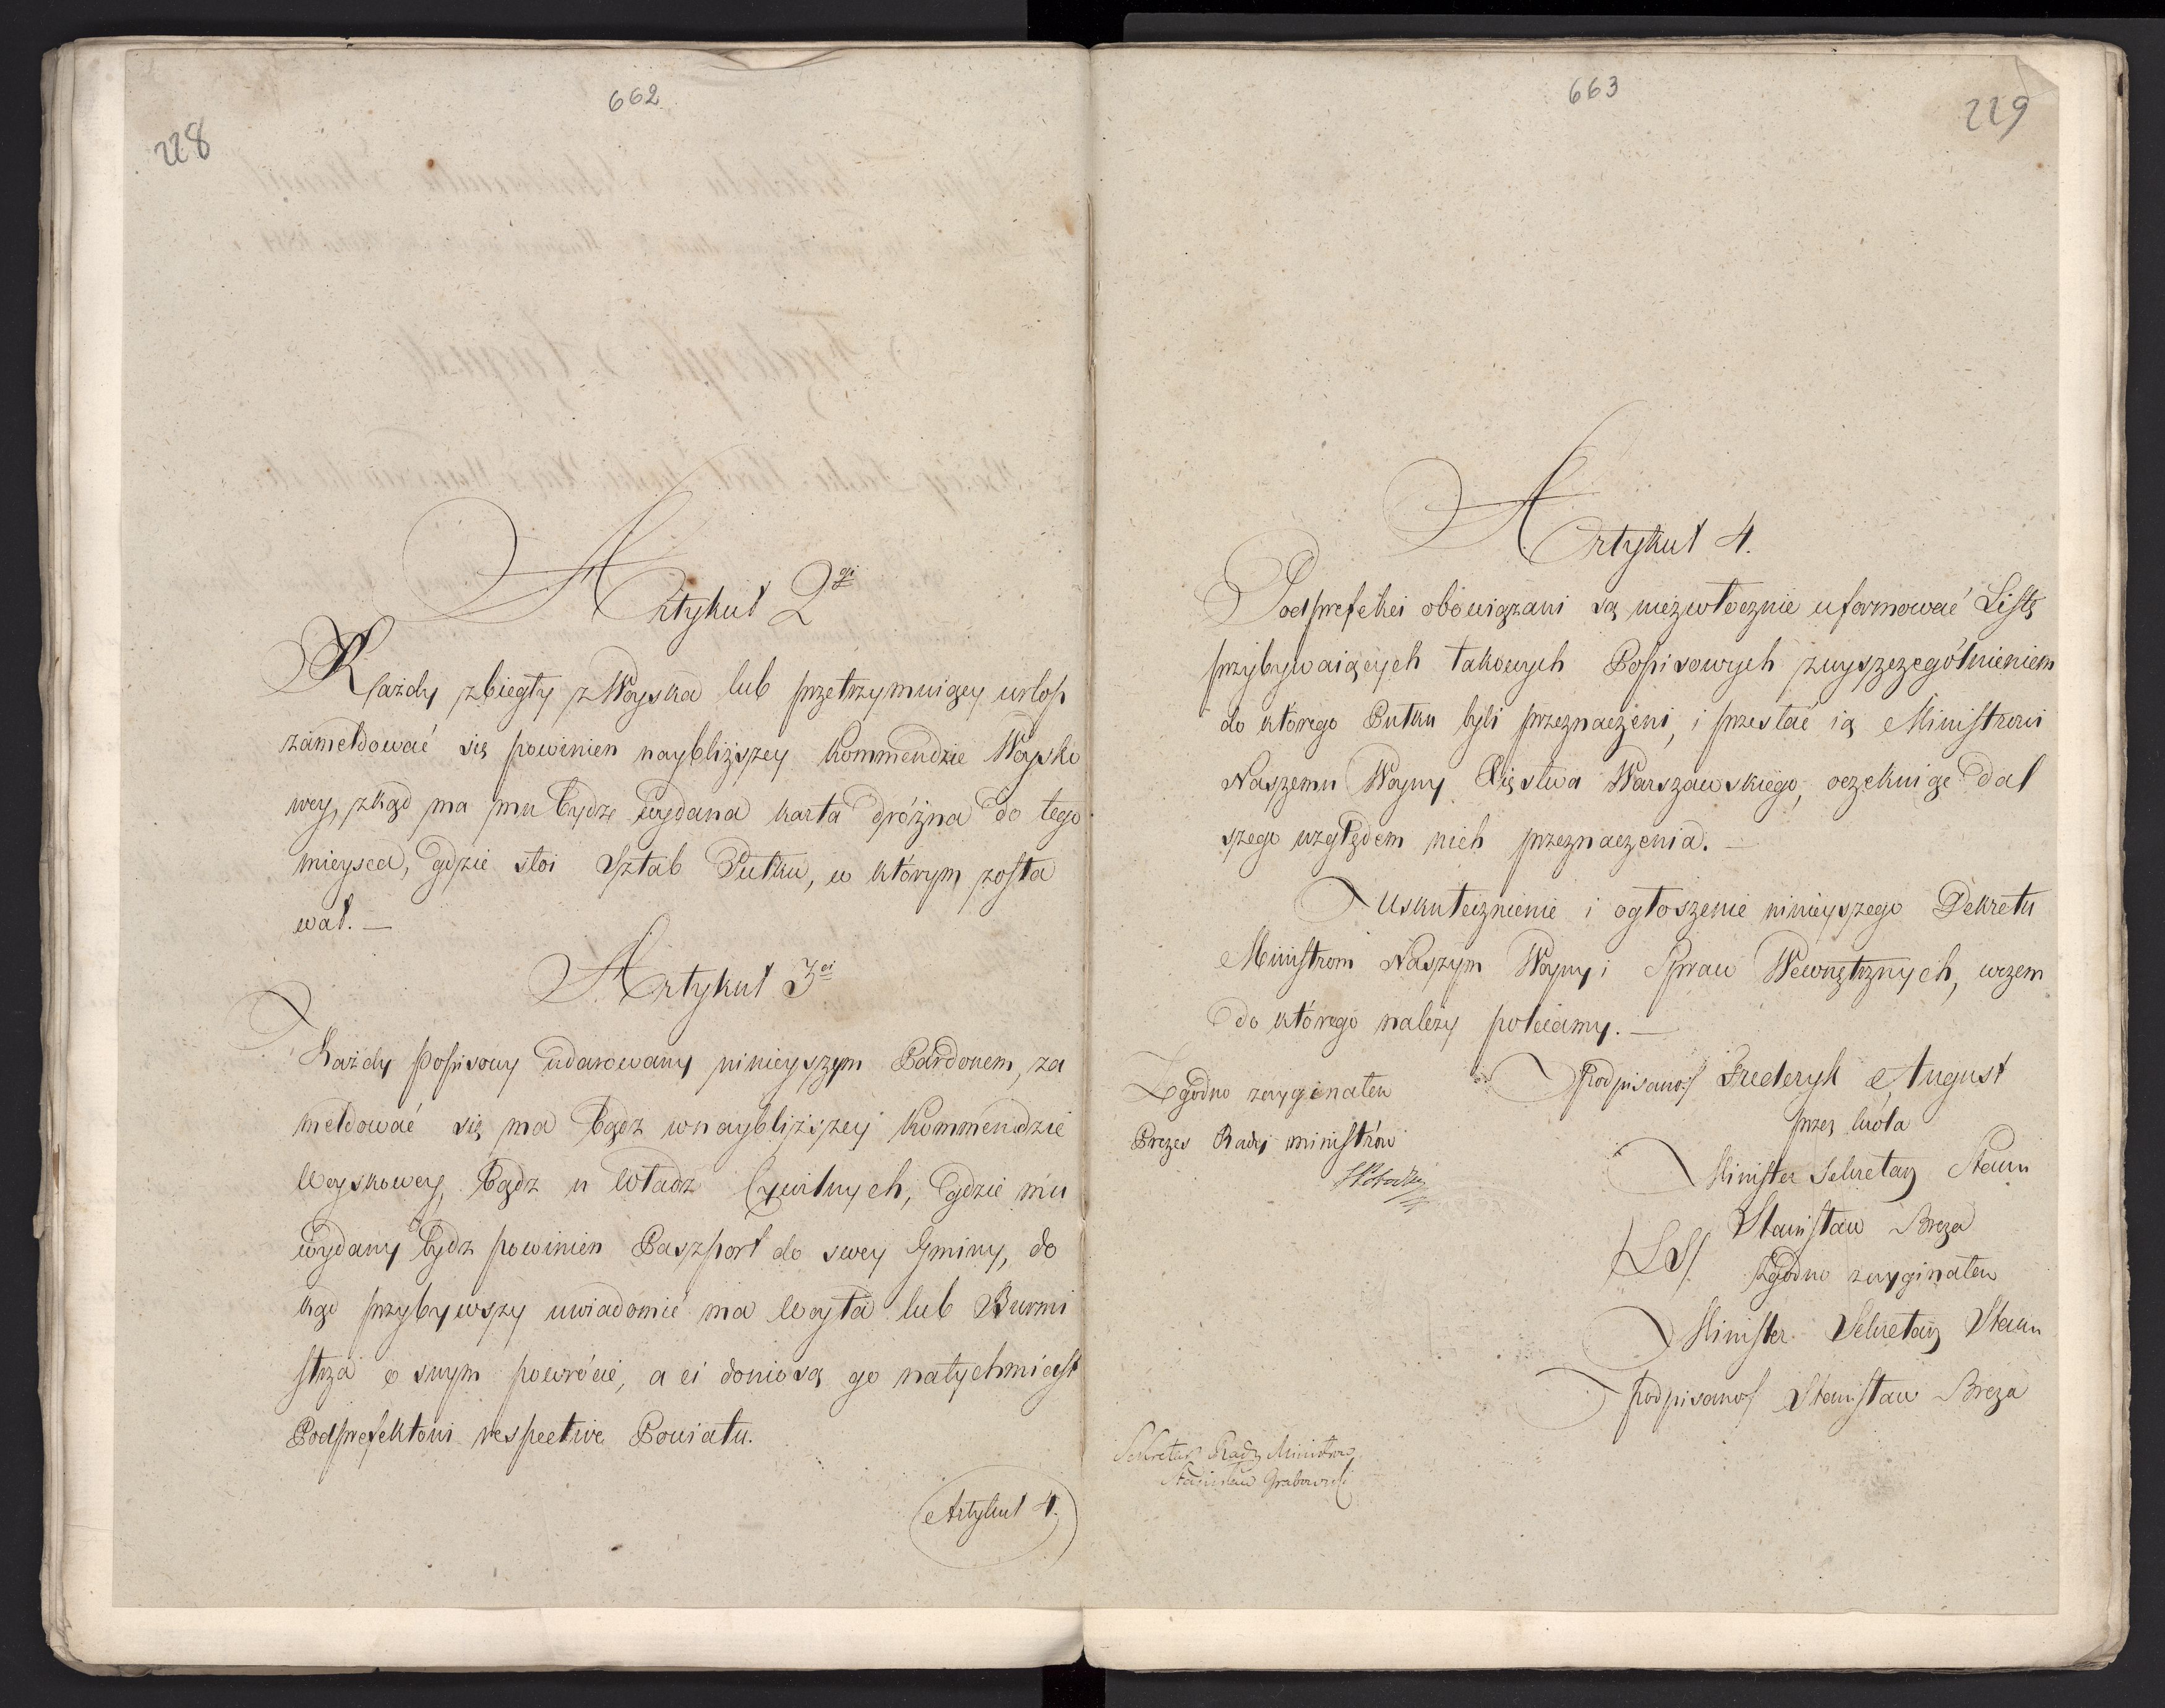 662
228
Artykuł 2gi
Każdy zbiegły z Woyska lub przetrzymuiący urlop
zameldować się powinien naybliższey Kommendzie Woysko
wey, zkąd ma mu bydź wydana karta dróżna do tego
mieysca, gdzie stoi Sztab Pułku, w którym zosta
wał. —
Artykuł 3ci
Każdy popisowy udarowany ninieyszym Pardonem, za
meldować się ma bądz w naybliższey Kommendzie
Woyskowey, bądz u Władz Cywilnych, gdzie mu
wydany bydz powinien Paszport do swey Gminy, do
kąd przybywszy uwiadomić ma Woyta lub Burmi
strza o swym powrócie, a ci doniosą go natychmiast
Podprefektowi respective Powiatu.
Artykuł 4.
663
229
Artykuł 4.
Podprefekci obowiązani są niezwłocznie uformować Listę
przybywaiących takowych Popisowych z wyszczególnieniem
do którego Pułku byli przeznaczeni, i przesłać ią Ministrowi
Naszemu Woyny Xięstwa Warszawskiego, oczekuiąc dal
szego względem nich przeznaczenia. —
Uskutecznienie i ogłoszenie ninieyszego Dekretu
Ministrom Naszym Woyny i Spraw Wewnętrznych, w czem
do którego należy polecamy. —
Podpisano/ Frederyk August
przez Króla
Minister Sekretarz Stanu
Stanisław Breza
/LS/ Zgodno z oryginałem
Minister Sekretarz Stanu
podpisano/ Stanisław Breza
Zgodno z oryginałem
Prezes Rady ministrów
Sekretarz Rady Ministrów
Stanisław Grabowski